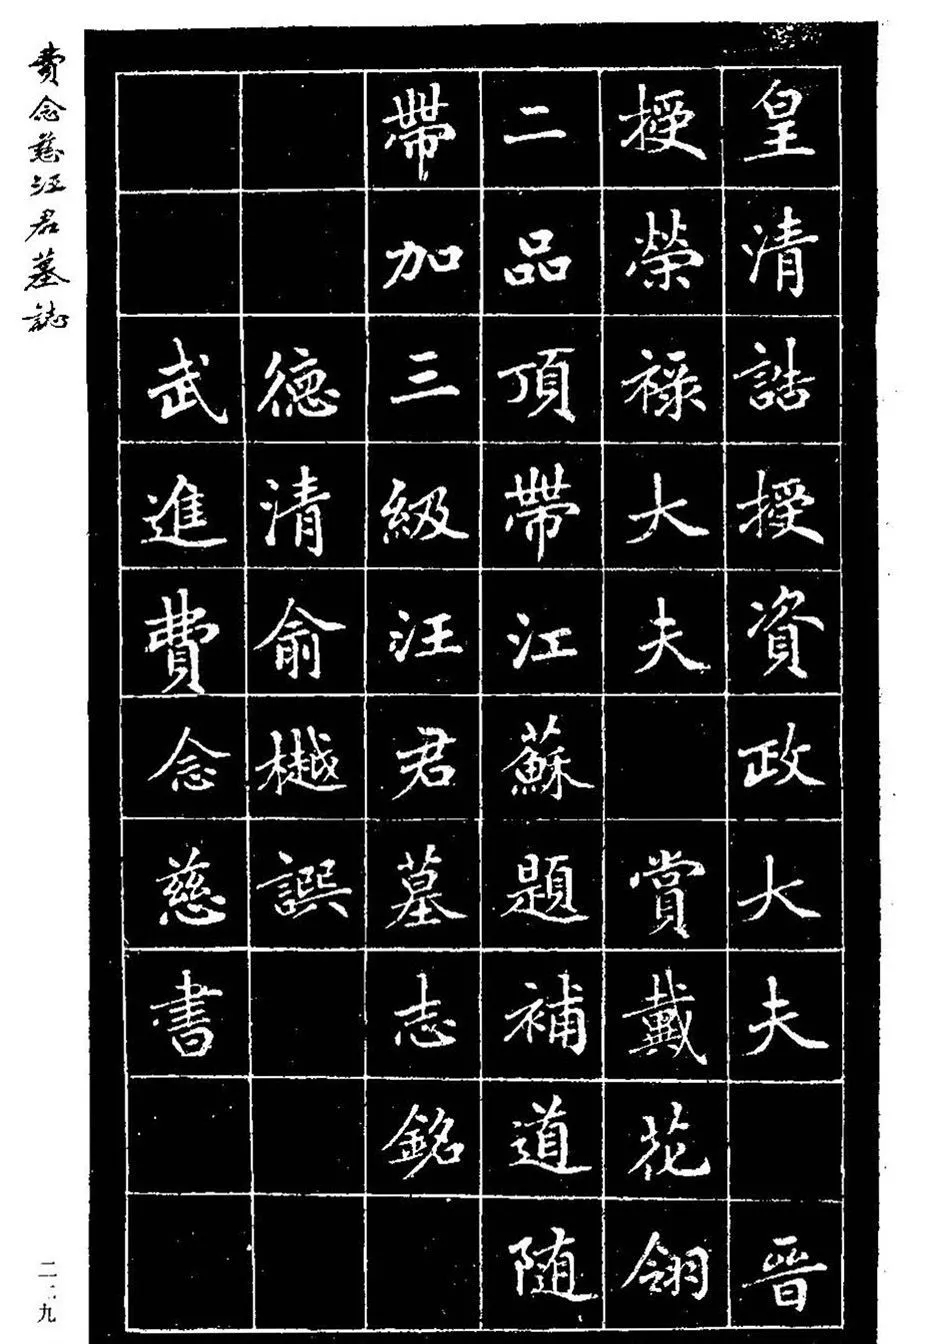 皇清誥授資政大夫 晉
授榮祿大夫 賞戴花翎
二品頂帶江蘇題補道隨
帶加三級汪君墓志銘
德清俞樾譔
武進費念慈書
費念慈汪君墓誌